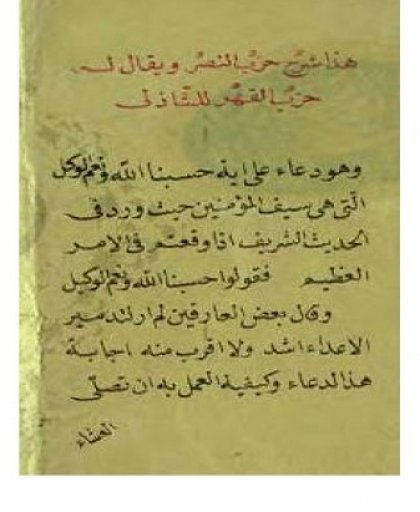 هذا شرح حزب النصر ويقال له
حزب القهر للشاذلى
وهو دعاء على اية حسبنا الله ونعم الوكيل
التى هى سيف المؤمنين حيث ورد فى
الحديث الشريف اذا وقعتم فى الامر
العظيم فقولوا حسبنا الله ونعم الوكيل
وقال بعض العارفين لم ار لتدمير
الاعداء اشد ولا اقرب منه اجابة
هذا الدعاء وكيفية العمل به ان تصلى
العشاء